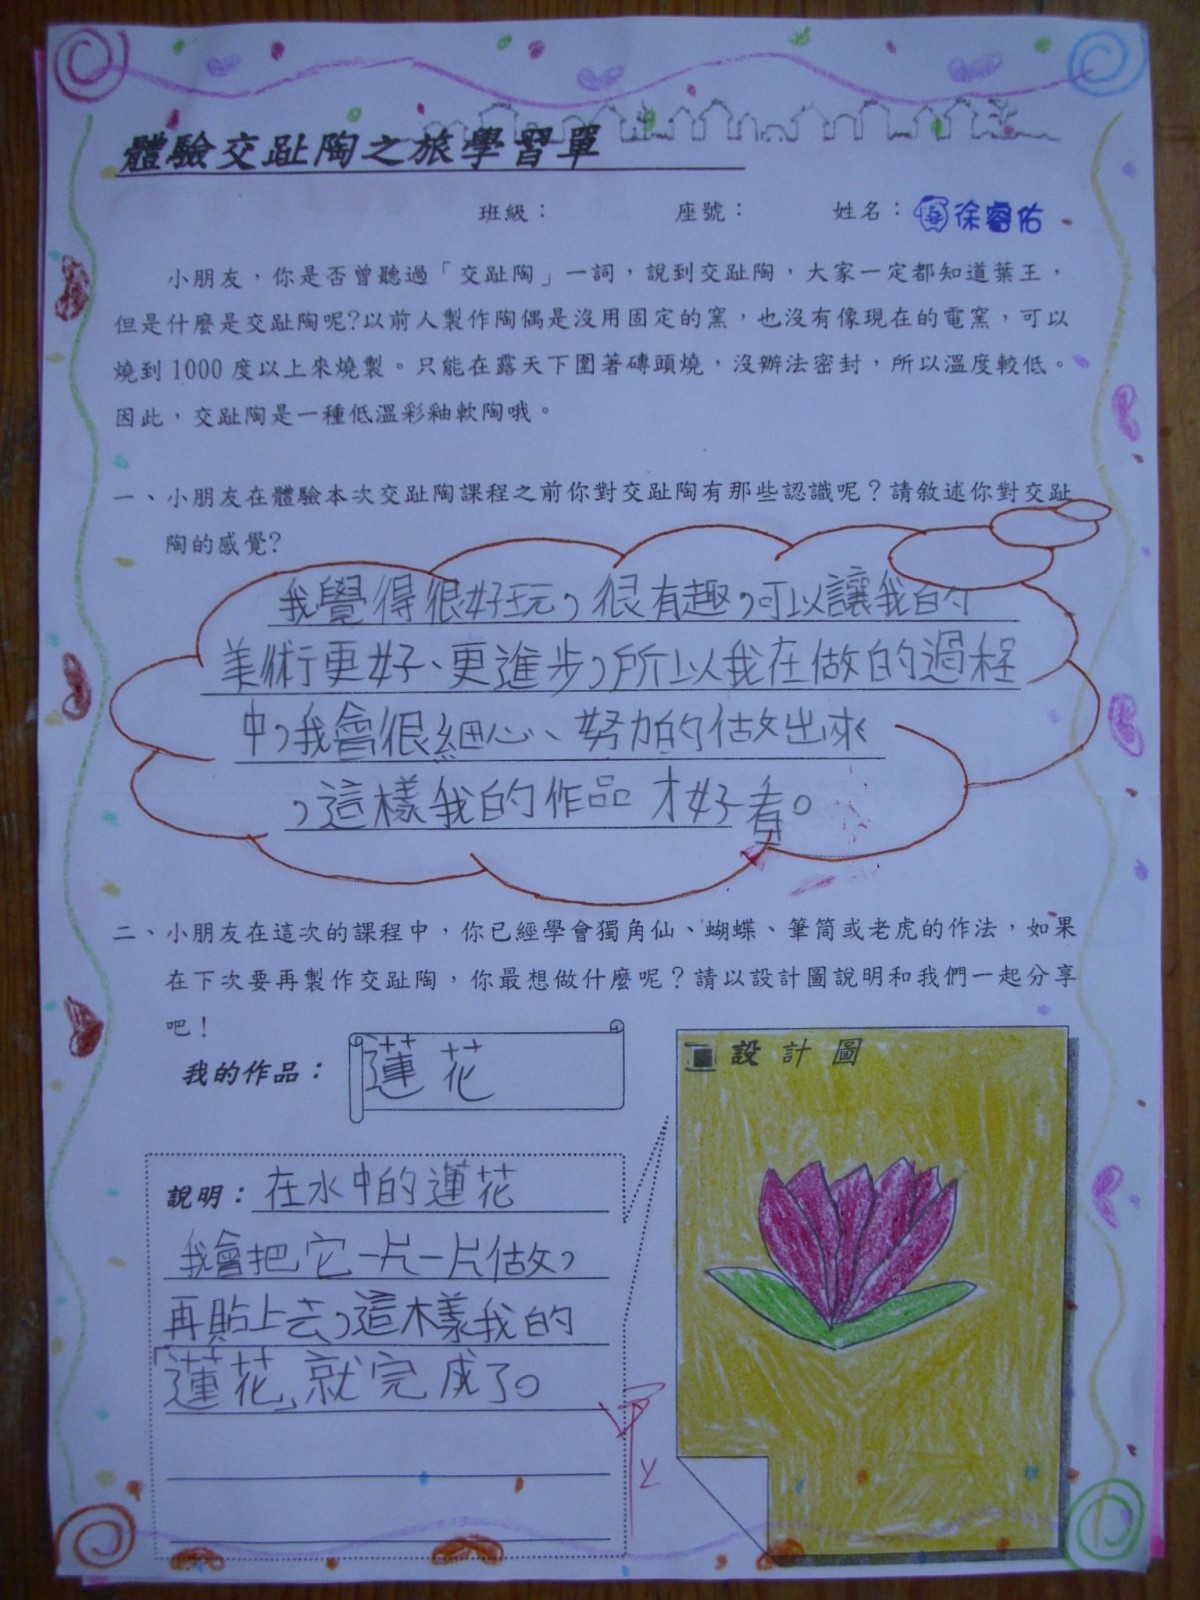 體驗交趾陶之旅學習單
班級： 座號： 姓名： 徐睿佑
小朋友，你是否曾聽過「交趾陶」一詞，說到交趾陶，大家一定都知道葉王，
但是什麼是交趾陶呢?以前人製作陶偶是沒用固定的窯，也沒有像現在的電窯，可以
燒到1000度以上來燒製。只能在露天下圍著磚頭燒，沒辦法密封，所以溫度較低。
因此，交趾陶是一種低溫彩釉軟陶哦。
一、小朋友在體驗本次交趾陶課程之前你對交趾陶有那些認識呢？請敘述你對交趾
陶的感覺?
我覺得很好玩，很有趣，可以讓我的
美術更好、更進步，所以我在做的過程
中，我會很細心、努力的做出來
，這樣我的作品才好看。
二、小朋友在這次的課程中，你已經學會獨角仙、蝴蝶、筆筒或老虎的作法，如果
在下次要再製作交趾陶，你最想做什麼呢？請以設計圖說明和我們一起分享
吧！
我的作品： 蓮花
設計圖
說明：在水中的蓮花
我會把它一片一片做，
再貼上去，這樣我的
「蓮花」就完成了。